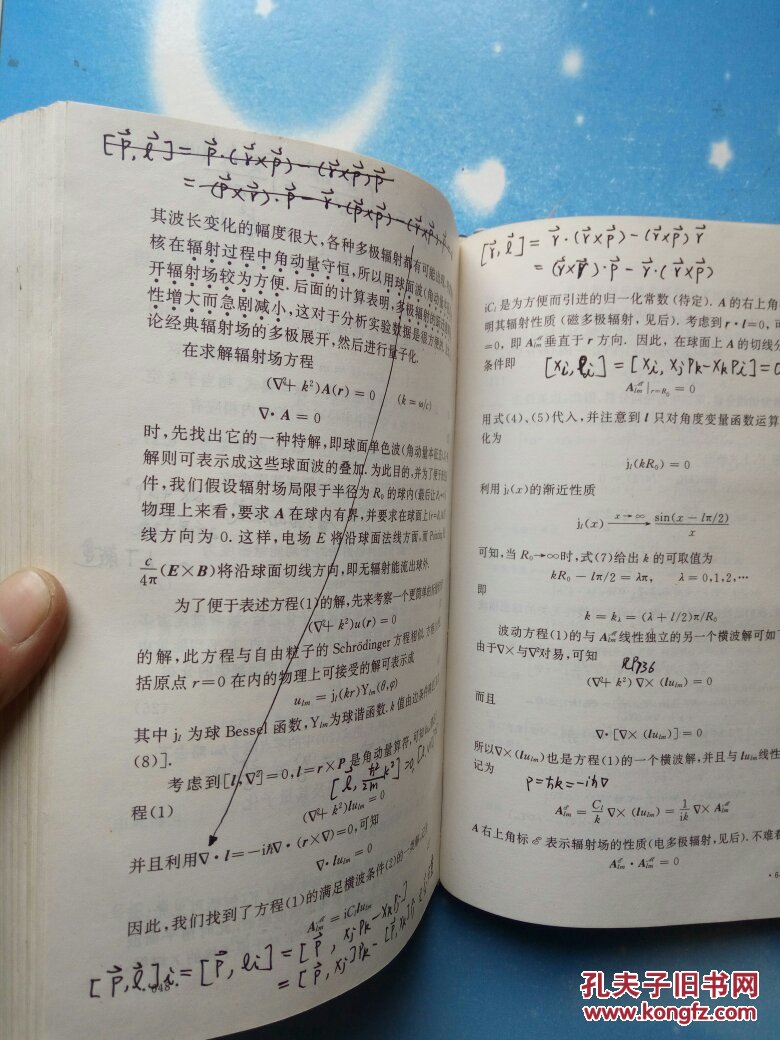 [p⃗, l⃗] = p⃗·(r⃗×p⃗) − (r⃗×p⃗)p⃗
= (p⃗×r⃗)·p⃗ − r⃗·(p⃗×p⃗) − (r⃗×p⃗)·p⃗
其波长变化的幅度很大,各种多极辐射都有可能出现
核在辐射过程中角动量守恒,所以用球面波(角动量
开辐射场较为方便.后面的计算表明,多极辐射
性增大而急剧减小,这对于分析实验数据是很方便
论经典辐射场的多极展开,然后进行量子化.
在求解辐射场方程
(∇²+ k²)A(r) = 0 (k = ω/c)
∇·A = 0
时,先找出它的一种特解,即球面单色波(角动量本征
解则可表示成这些球面波的叠加.为此目的,并为了便于
件,我们假设辐射场局限于半径为 R₀ 的球内(最后让
物理上来看,要求 A 在球内有界,并要求在球面上
线方向为 0. 这样,电场 E 将沿球面法线方面,而
c/4π (E×B)将沿球面切线方向,即无辐射能流出球外.
为了便于表述方程(1)的解,先来考察一个更简单的
(∇²+ k²)u(r) = 0
的解,此方程与自由粒子的 Schrödinger 方程相似.
括原点 r=0 在内的物理上可接受的解可表示成
uₗₘ = jₗ(kr)Yₗₘ(θ,φ)
其中 jₗ 为球 Bessel 函数,Yₗₘ为球谐函数. k 值由边条件
(8)].
考虑到[l,∇²]=0,l=r×P 是角动量算符,可知
[l⃗, ħ²/2m k²] = 0
程(1)
(∇²+ k²)luₗₘ = 0
并且利用∇·l=−iħ∇·(r×∇)=0,可知
∇·luₗₘ = 0
因此,我们找到了方程(1)的满足横波条件(2)的一
Aₗₘ = iCₗluₗₘ
[p⃗, l⃗]i = [p⃗, li] = [p⃗, xjpk − xkpj]
= [p⃗, xj]pk − [p⃗, xk]pj
[r⃗, l⃗] = r⃗·(r⃗×p⃗) − (r⃗×p⃗)r⃗
= (r⃗×r⃗)·p⃗ − r⃗·(r⃗×p⃗)
iCₗ 是为方便而引进的归一化常数(待定). A 的右上角
明其辐射性质 (磁多极辐射,见后). 考虑到 r·l=0,
=0,即 Aₗₘ垂直于 r 方向. 因此,在球面上 A 的切线分
[xi, li] = [xi, xjpk − xkpj] = 0
条件即
Aₗₘ|r=R₀ = 0
用式(4)、(5)代入,并注意到 l 只对角度变量函数运算
化为
jₗ(kR₀) = 0
利用 jₗ(x)的渐近性质
jₗ(x) x→∞→ sin(x − lπ/2)/x
可知,当 R₀→∞时,式(7)给出 k 的可取值为
kR₀ − lπ/2 = λπ, λ = 0,1,2,…
即
k = kλ = (λ + l/2)π/R₀
波动方程(1)的与 Aₗₘ线性独立的另一个横波解可如
由于∇×与∇²对易,可知
(∇²+ k²) ∇× (luₗₘ) = 0
而且
∇·[∇× (luₗₘ)] = 0
所以∇×(luₗₘ)也是方程(1)的一个横波解,并且与 luₗₘ线性
记为
p = ħk = −iħ∇
Aₗₘ = Cₗ/k ∇× (luₗₘ) = 1/ik ∇× Aₗₘ
A 右上角标 ℰ 表示辐射场的性质(电多极辐射,见后). 不难看
Aₗₘ·Aₗₘ = 0
孔夫子旧书网
www.kongfz.com